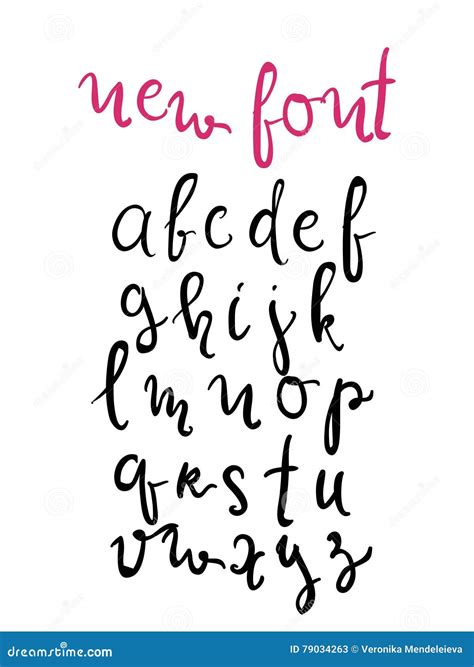 new font
a b c d e f
g h i j k
l m n o p
q r s t u
v w x y z
dreamstime.com
ID 79034263 © Veronika Mendeleieva